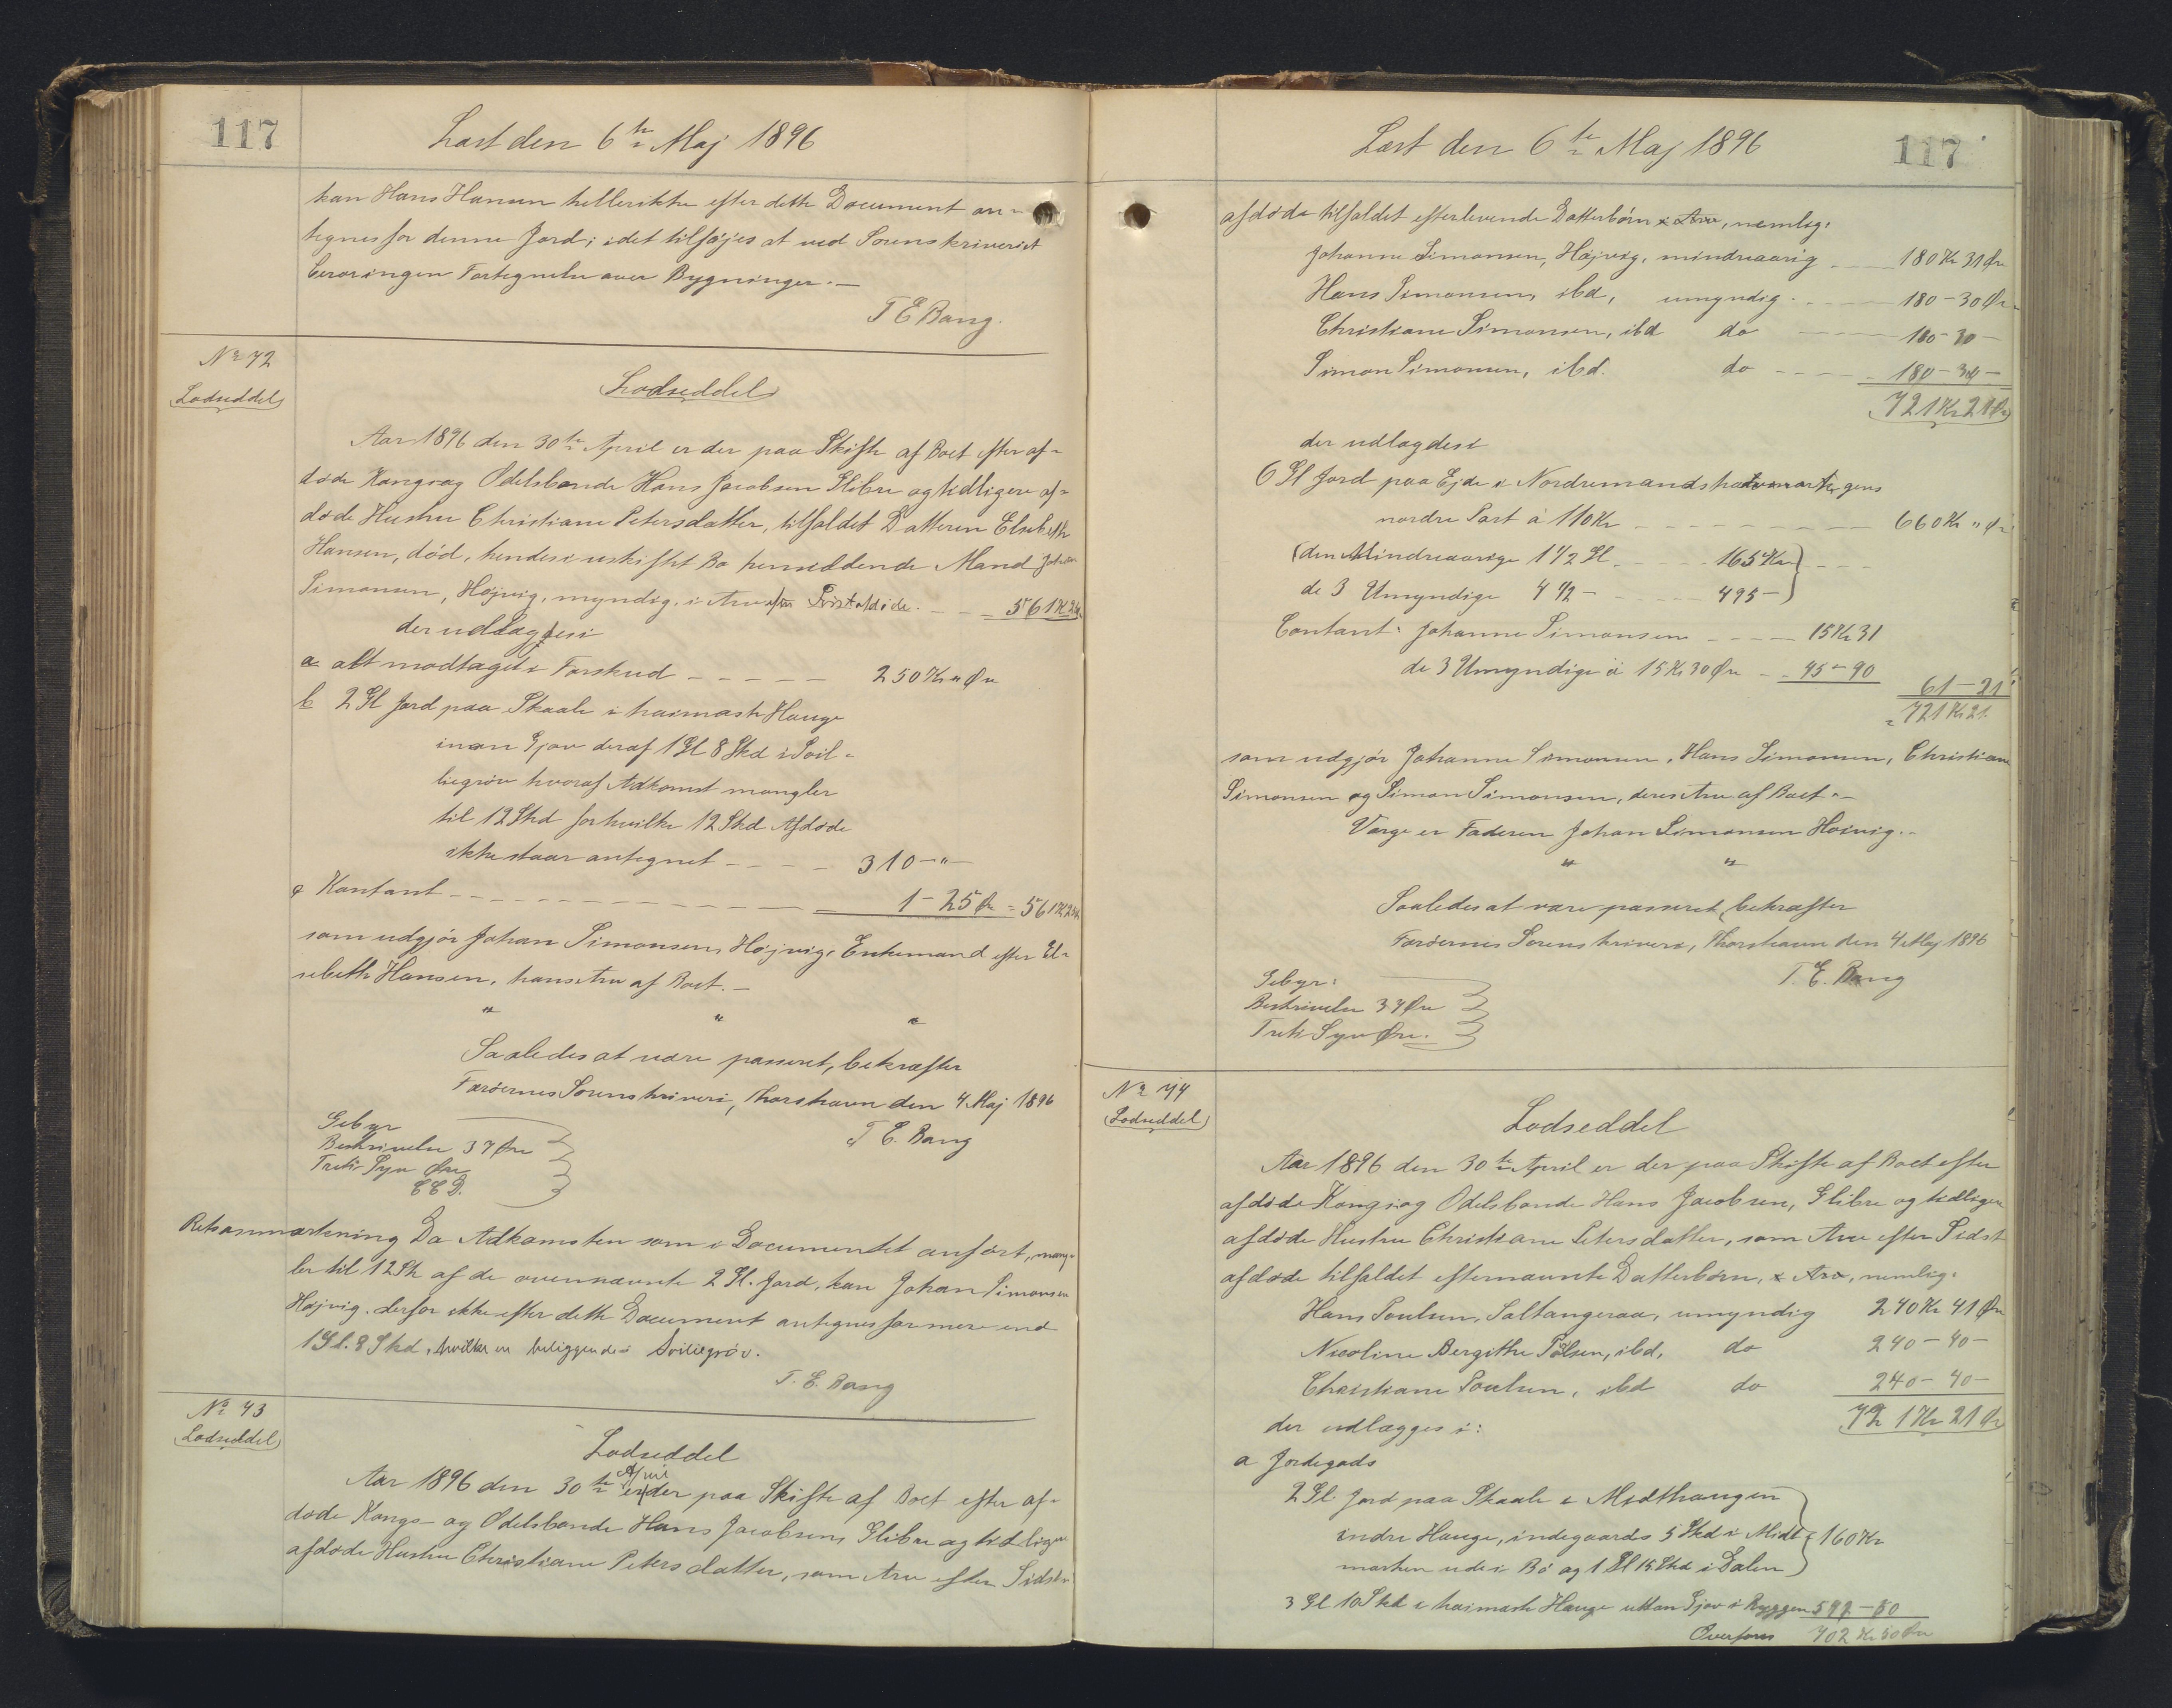 117
Læst den 6te Maj 1896
kan Hans Hansen hellerikke efter dette Document an-
tegnes for denne Jord; idet tilføjes at ved Sorenskriveriet
beroringen Fortegnelse over Bygninger.—
T E Bang.
No 72
Lodseddel
Lodseddel
Aar 1896 den 30te April er der paa Skifte af Boet efter af-
døde Kongs og Odelsbonde Hans Jacobsen Glibre og tidligere af-
døde Hustru Christiane Petersdatter, tilfaldet Datteren Elsebeth
Hansen, død, hendes i uskiftet Bo henseddende Mand Johan
Simonsen, Højvig, myndig, i Arv efter Sidstafdøde. — — 561 Kr 25
der udlægges i
a alt modtaget i Forskud — — — — — 250 Kr " Øre
b 2 Gl Jord paa Skaale i haimaste Hauge
innan Gjov deraf 1 Gl 8 Skd i Soil-
liegröv hvoraf Adkomst mangler
til 12 Skd for hvilke 12 Skd Afdøde
ikke staar antegnet — — — — 310 — " —
c Kontant — — — — — — — — 1 — 25 Øre = 561 Kr 25
som udgjør Johan Simonsens, Højvig, Enkemand efter El-
sebeth Hansen, hans Arv af Boet. —
" " "
Saaledes at være passeret, bekræfter
Færøernes Sorenskriveri, Thorshavn den 4 Maj 1896
T E. Bang
Gebyr
Beskrivelse 37 Øre
Treti Syv Øre
Retsanmærkning Da Adkomsten som i Documentet anført, mang-
ler til 12 Sk af de ovennævnte 2 Gl. Jord, kan Johan Simonsen
Højvig, derfor ikke efter dette Document antegnes for mere end
1 Gl. 8 Skd, hvilke er beliggende i Soiliegröv.
T. E. Bang
No 73
Lodseddel
Lodseddel
Aar 1896 den 30te April er der paa Skifte af Boet efter af-
døde Kongs- og Odelsbonde Hans Jacobsens, Glibre og tidligere
afdøde Hustru Christiane Petersdatter, som Arv efter Sidst-
Læst den 6te Maj 1896
117
afdøde tilfaldet efterlevende Datterbørn i Arv, nemlig:
Johanne Simonsen, Højvig, mindreaarig — — 180 Kr 31 Øre
Hans Simonsen, ibd, umyndig. — — — 180 — 30 Øre
Christiane Simonsen, ibd do — — — 180 — 30 —
Simon Simonsen, ibd. do — — — 180 — 30 —
721 Kr 21 Øre
der udlægdes i
6 Gl Jord paa Ejde i
nordre Part à 110 Kr — — — — — — 660 Kr " Øre
(den Mindreaarige 1 1/2 Gl. — — — 165 Kr) — — —
de 3 Umyndige 4 1/2 — — — — 495 —)
Contant: Johanne Simonsen — — — 15 Kr 31
de 3 Umyndige à 15 Kr 30 Øre — — 45 — 90
61 — 21
= 721 Kr 21.
som udgjør Johanne Simonsen, Hans Simonsen, Christiane
Simonsen og Simon Simonsen, deres Arv af Boet. —
Værge er Faderen Johan Simonsen Hoivig. —
" "
Saaledes at være passeret, bekræfter
Færøernes Sorenskriveri, Thorshavn den 4 Maj 1896
T. E. Bang
Gebyr:
Beskrivelse 37 Øre
Treti Syv Øre.
No 74
Lodseddel
Lodseddel
Aar 1896 den 30te April er der paa Skifte af Boet efter
afdøde Kongs og Odelsbonde Hans Jacobsen, Glibre og tidligere
afdøde Hustru Christiane Petersdatter, som Arv efter Sidst
afdøde tilfaldet efternævnte Datterbørn, i Arv, nemlig:
Hans Poulsen, Saltangeraa, umyndig 240 Kr 41 Øre
Nicoline Bergithe Pólsen, ibd, do 240 — 40 —
Christiane Poulsen, ibd do 240 — 40 —
721 Kr 21 Øre
der udlægges i:
a Jordegods
2 Gl. Jord paa Skaale i Midthaugen
indre Hauge, indegaards 5 Skd i Midt-
marken ude i Bø og 1 Gl 15 Skd i Dalen 160 Kr
3 Gl 10 Skd i haimaste Hauge uttan Gjov i Ryggen 542 — 50
Overføres 702 Kr 50 Øre